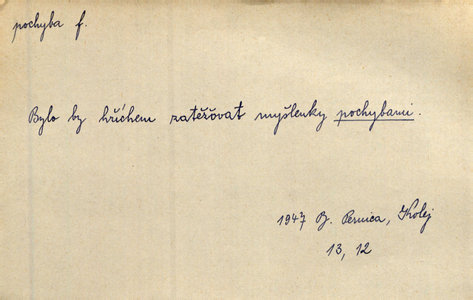 pochyba f.
Bylo by hříchem zatěžovat myšlenky pochybami.
1947 B. Pernica, Kolej
13, 12